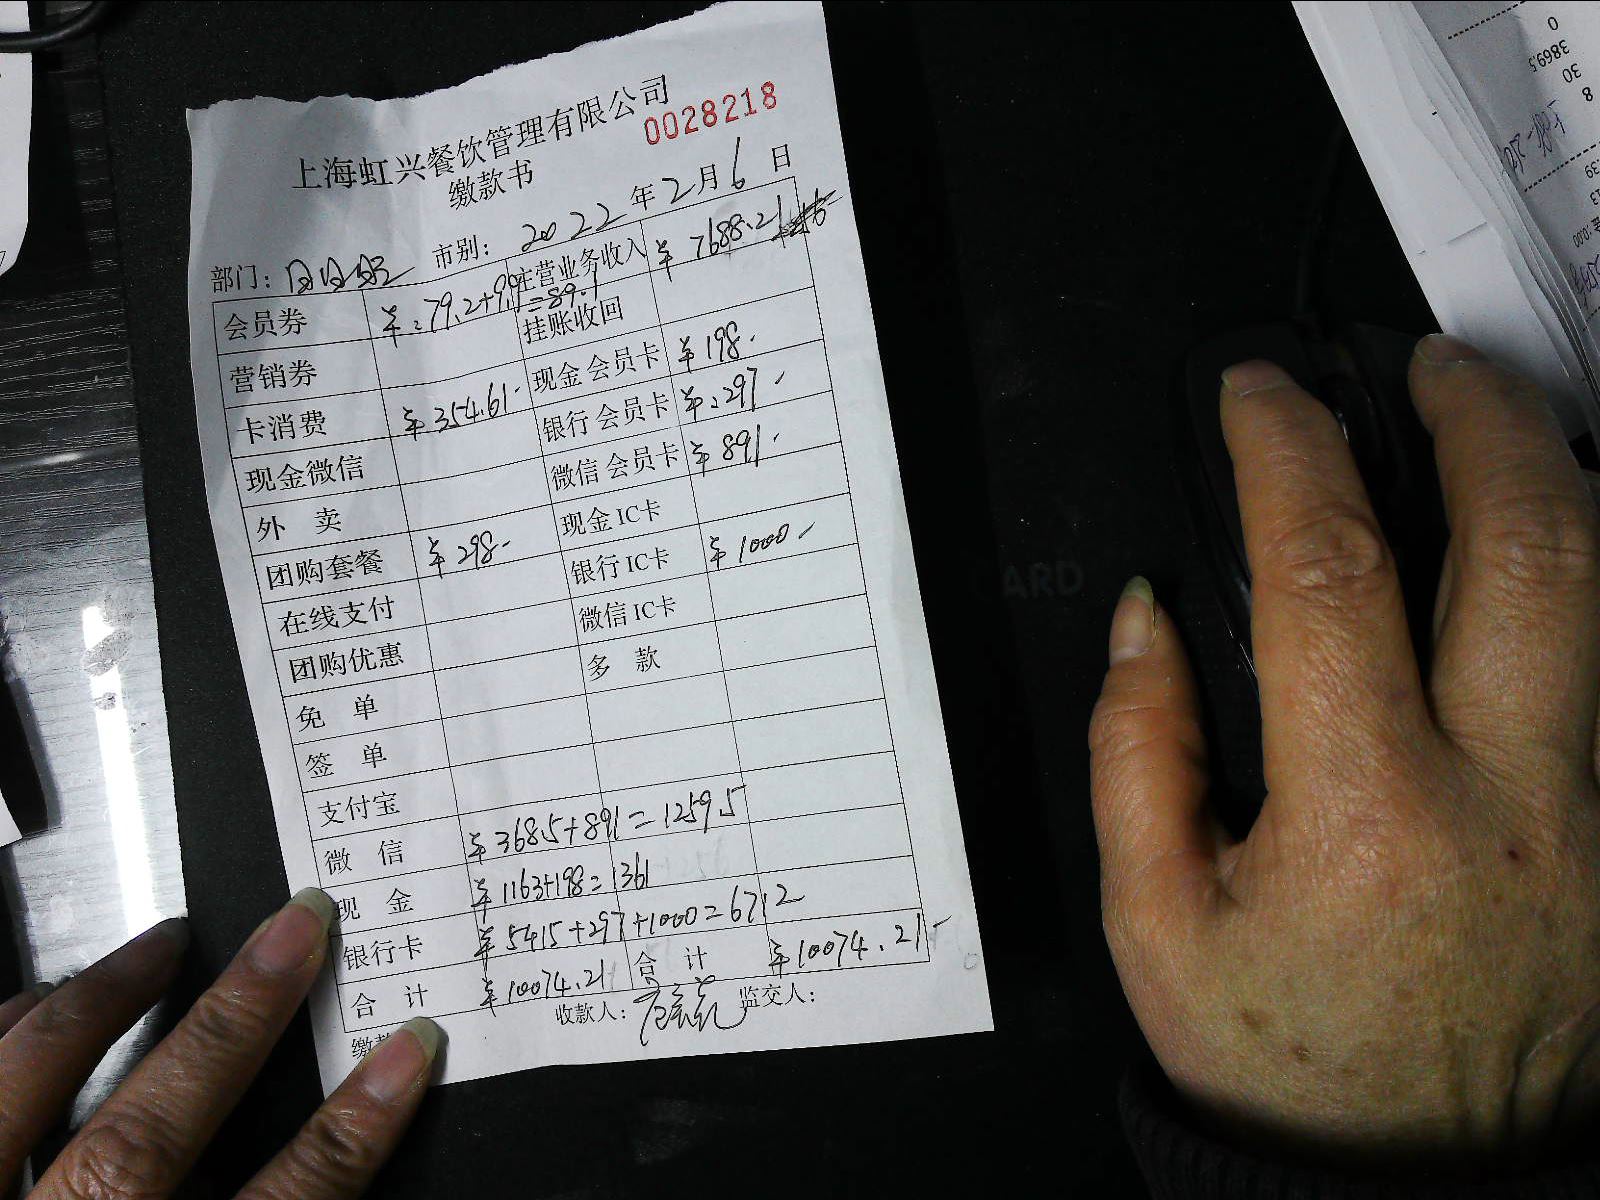 上海虹兴餐饮管理有限公司
0028218
缴款书
部门: 市别: 2022 年 2 月 6 日
会员券 ¥:79.2+9.9=89.1 主营业务收入 ¥ 7688.21
营销券 挂账收回
卡消费 ¥ 354.61- 现金会员卡 ¥ 198.-
现金微信 银行会员卡 ¥:297.-
外 卖 微信会员卡 ¥ 891.-
团购套餐 ¥ 298.- 现金IC卡
在线支付 银行IC卡 ¥ 1000.-
团购优惠 微信IC卡
免 单 多 款
签 单
支付宝
微 信 ¥ 368.5+891=1259.5
现 金 ¥ 1163+198=1361
银行卡 ¥ 5415+297+1000=6712
合 计 ¥ 10074.21 合 计 ¥ 10074.21-
收款人: 监交人:
ARD
8
30
3869.5
0